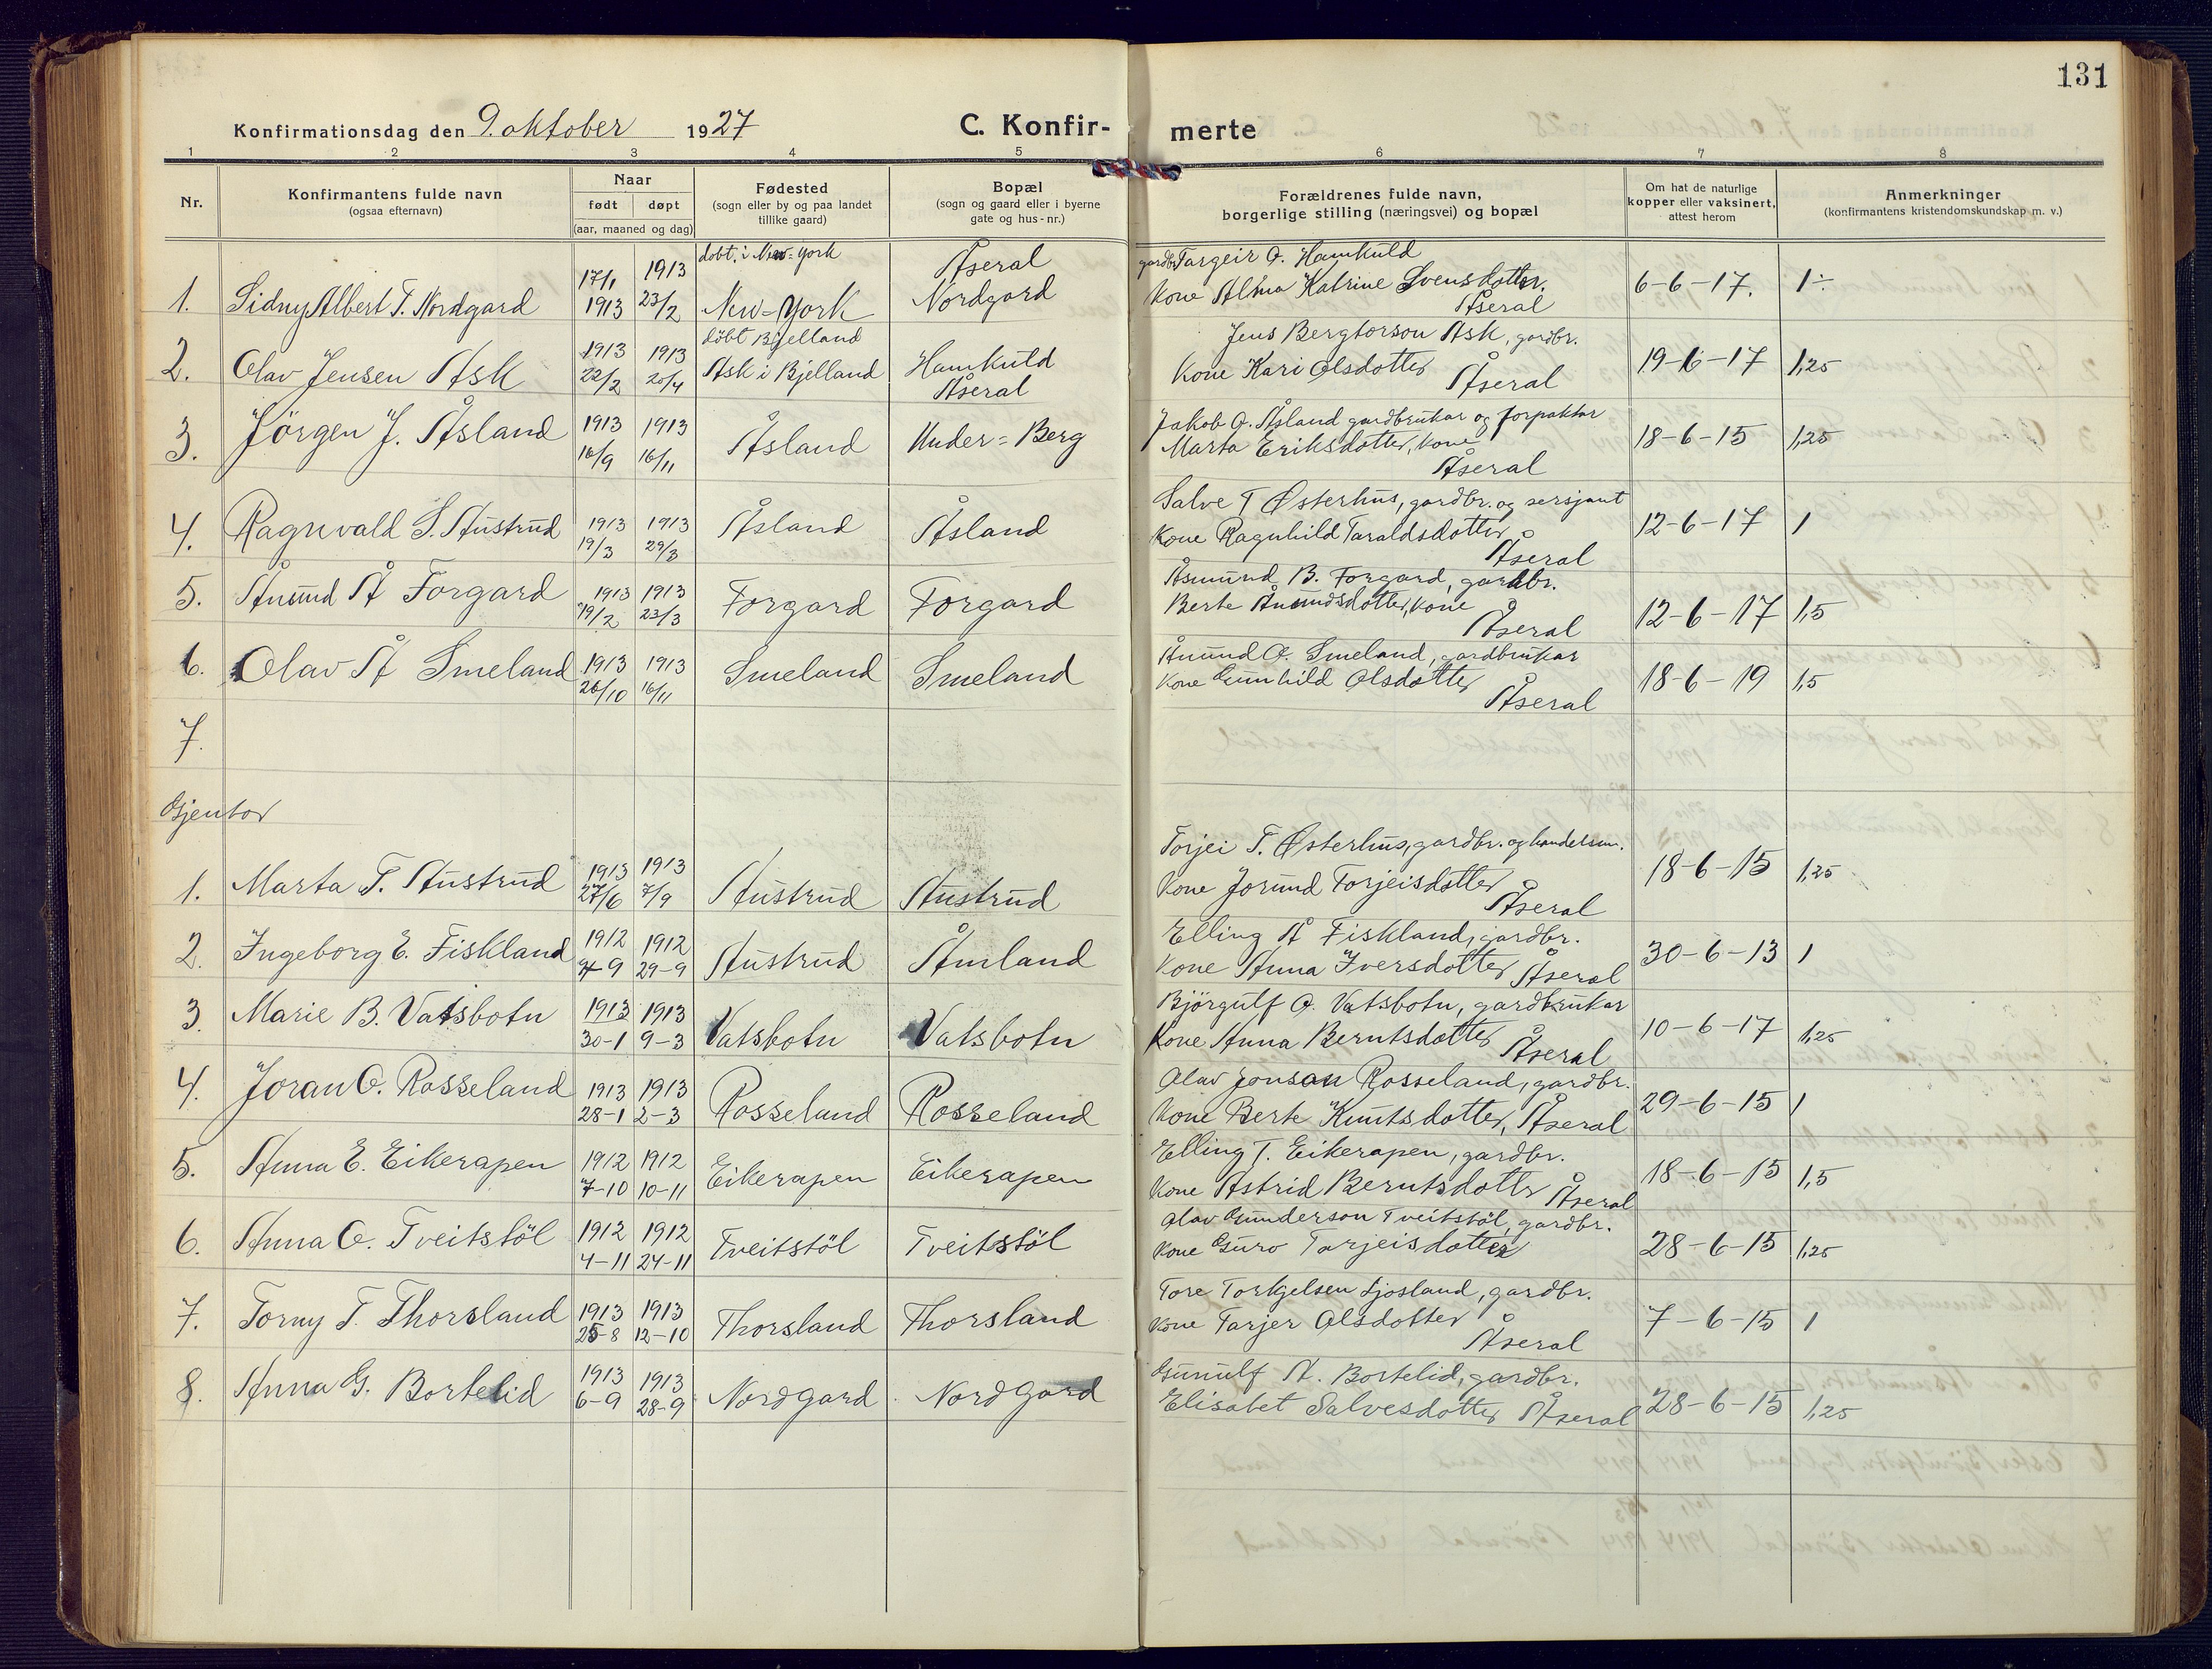 131
Konfirmationsdag den 9. oktober 1927
C. Konfir-merte
1 2 3 4 5 6 7 8
Nr.
Konfirmantens fulde navn
(ogsaa efternavn)
Naar
født døpt
(aar, maaned og dag)
Fødested
(sogn eller by og paa landet
tillike gaard)
Bopæl
(sogn og gaard eller i byerne
gate og hus-nr.)
Forældrenes fulde navn,
borgerlige stilling (næringsvei) og bopæl
Om hat de naturlige
kopper eller vaksinert,
attest herom
Anmerkninger
(konfirmantens kristendomskundskap m. v.)
1. Sidny Albert T. Nordgard 17/1 1913 1913 23/2 døbt. i New=York New=York Åseral Nordgard
gardbr Targeir O. Hamkuld
Kone Alma Katrine Svensdotter.
Åseral
6-6-17. 1÷
2. Olav Jensen Ask 1913 22/2 1913 20/4 döbt Bjelland Ask i Bjelland Hamkuld Åseral
Jens Bergtorson Ask, gardbr.
Kone Kari Olsdotter
Åseral
19-6-17 1,25
3. Jörgen J. Åsland 1913 16/9 1913 16/11 Åsland Under=Berg
Jakob O. Åsland gardbrukar og forpaktar
Marta Eriksdotter, kone
Åseral
18-6-15 1,25
4. Ragnvald S. Austrud 1913 19/3 1913 29/3 Åsland Åsland
Salve T Østerhus, gardbr. og sersjant
Kone Ragnhild Taraldsdotter
Åseral
12-6-17 1
5. Ånund Å Forgard 1913 19/2 1913 23/3 Forgard Forgard
Åsmund B. Forgard, gardbr.
Berte Ånundsdotter, kone
Åseral
12-6-17 1,5
6. Olav Å Smeland 1913 26/10 1913 16/11 Smeland Smeland
Ånund O. Smeland, gardbrukar
Kone Gunhild Olsdotter
Åseral
18-6-19 1,5
7.
Gjentor
1. Marta T. Austrud 1913 27/6 1913 7/9 Austrud Austrud
Torjei T. Østerhus, gardbr. og handelsm.
Kone Jorund Torjeisdotter
Åseral
18-6-15 1,25
2. Ingeborg E. Fiskland 1912 4-9 1912 29-9 Austrud Åmland
Elling Å Fiskland, gardbr.
Kone Anna Iversdotter Åseral
30-6-13 1
3. Marie B. Vatsbotn 1913 30-1 1913 9-3 Vatsbotn Vatsbotn
Björgulf O. Vatsbotn, gardbrukar
Kone Anna Berntsdotter Åseral
10-6-17 1,25
4. Joran O. Rosseland 1913 28-1 1913 2-3 Rosseland Rosseland
Olav Jonson Rosseland, gardbr.
Kone Berte Knutsdotter, Åseral
29-6-15 1
5. Anna E. Eikerapen 1912 7-10 1912 10-11 Eikerapen Eikerapen
Elling T. Eikerapen, gardbr.
Kone Astrid Berntsdotter Åseral
18-6-15 1,5
6. Anna O. Tveitstöl 1912 4-11 1912 24-11 Tveitstöl Tveitstöl
Olav Gunderson Tveitstöl, gardbr.
Kone Guro Tarjeisdotter
28-6-15 1,25
7. Torny T. Thorsland 1913 25-8 1913 12-10 Thorsland Thorsland
Tore Torkjelsen Ljosland, gardbr.
Kone Tarjer Olsdotter
Åseral
7-6-15 1
8. Anna G. Bortelid 1913 6-9 1913 28-9 Nordgard Nordgard
Gunulf A. Bortelid, gardbr.
Elisabet Salvesdotter Åseral
28-6-15 1,25